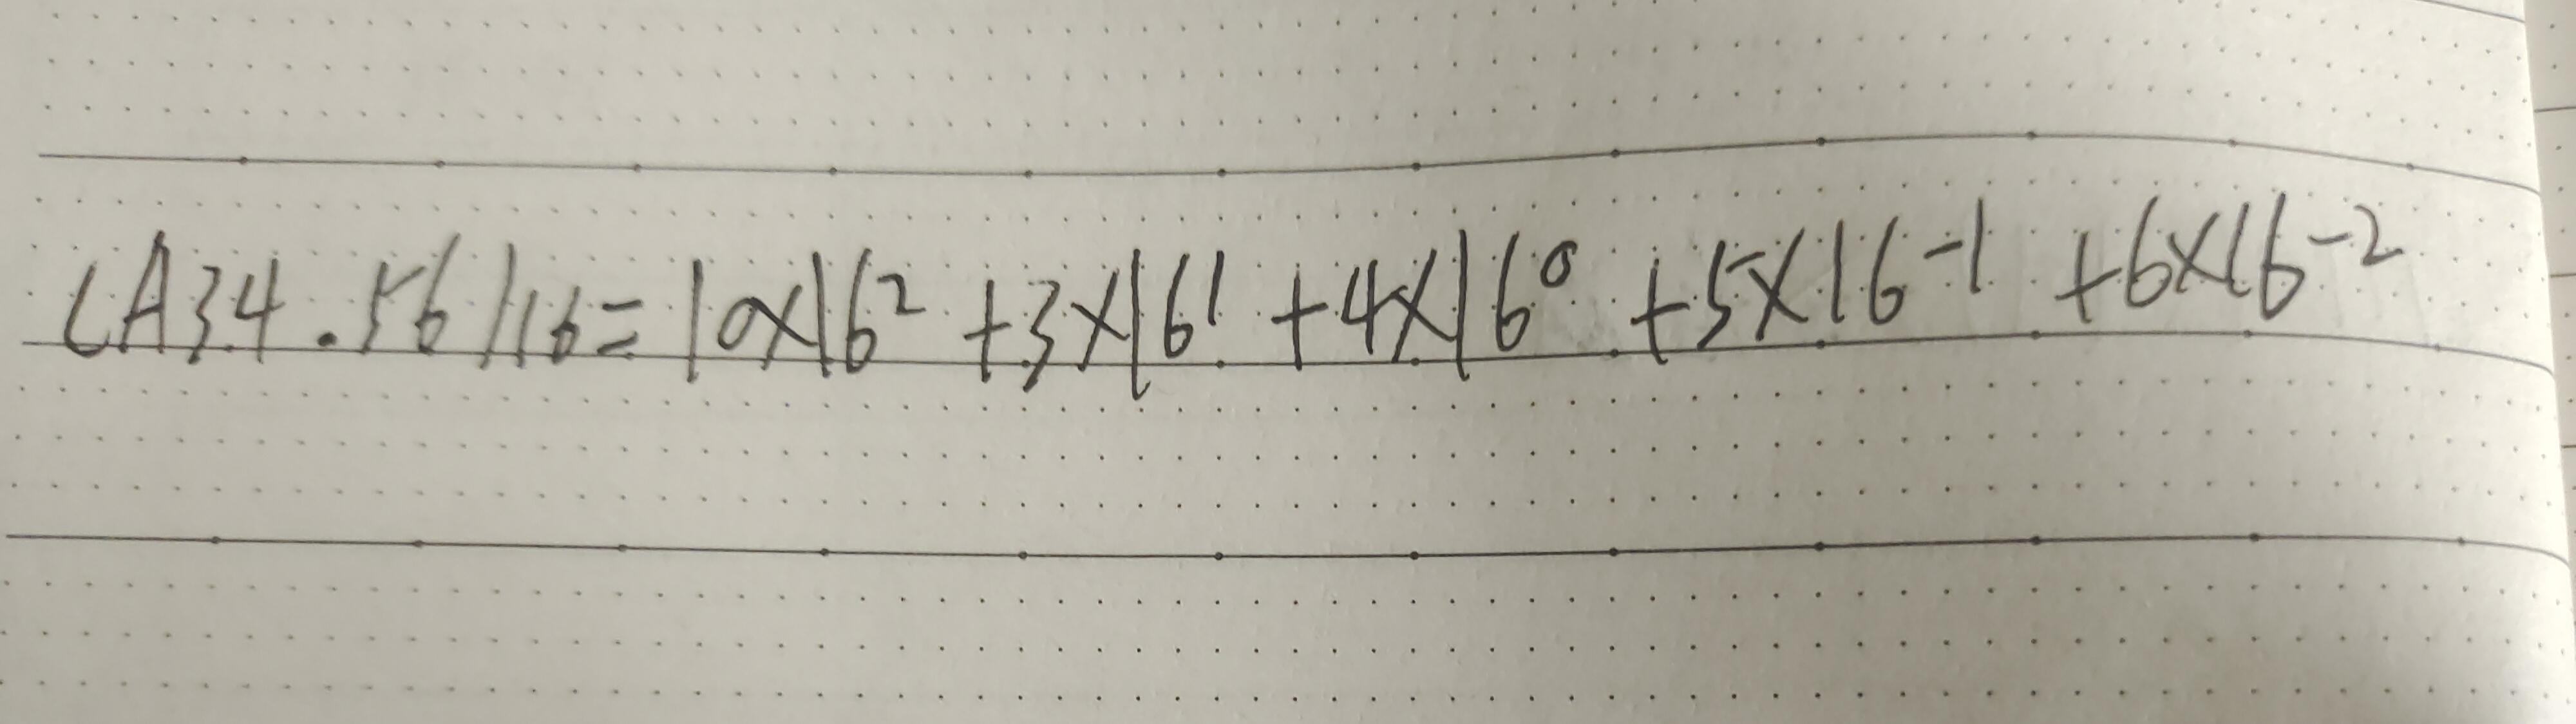 (A34.56)16=10×16² +3×16¹ +4×16⁰ +5×16⁻¹ +6×16⁻²